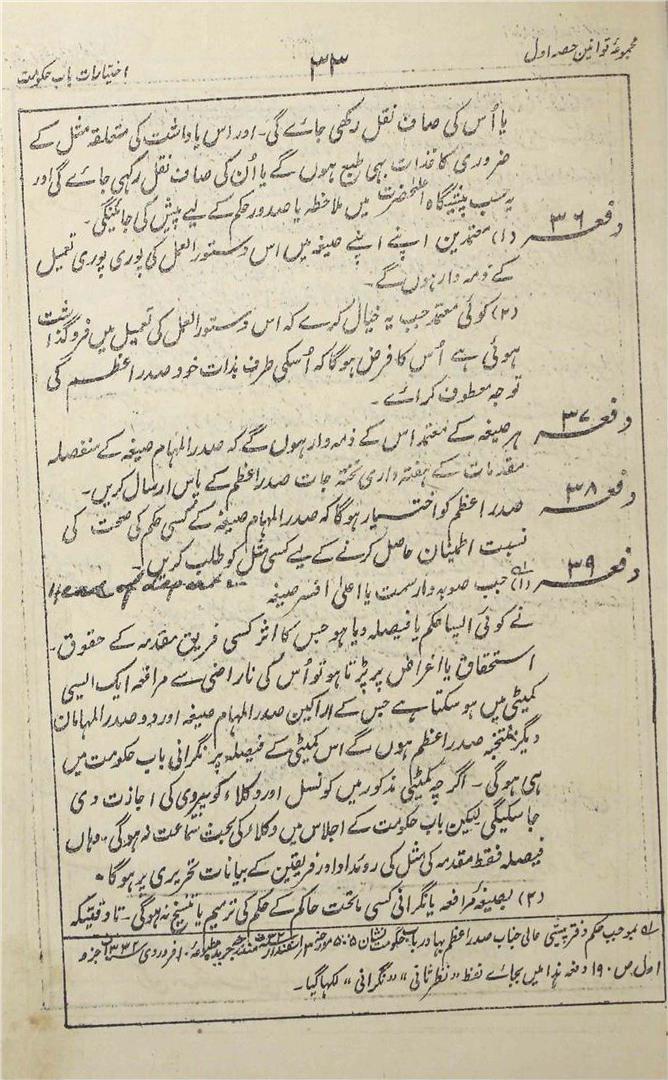 مجموعۂ قوانین حصہ اول
۳۳
اختیارات باب حکومت
یا اُس کی صاف نقل رکھی جائے گی۔ اور اس یاداشت کی متعلقہ مثل کے
ضروری کاغذات بھی طبع ہوں گے یا اُن کی صاف نقل رکھی جائے گی اور
یہ سب پیشگاہ اعلحضرت میں ملاحظہ یا صدور حکم کے لیے پیش کی جائینگی۔
دفعہ ۳۶ (۱) معتمدین اپنے اپنے صیغہ میں اس دستور العمل کی پوری پوری تعمیل
کے ذمہ دار ہوں گے۔
(۲) کوئی معتمد جب یہ خیال کرے کہ اس دستور العمل کی تعمیل میں فروگذاشت
ہوئی ہے اُس کا فرض ہوگا کہ اُسکی طرف بذات خود صدر اعظم کی
توجہ معطوف کرائے۔
دفعہ ۳۷ ہر صیغہ کے معتمد اس کے ذمہ دار ہوں گے کہ صدر المہام صیغہ کے منفصلہ
مقدمات کے ہفتہ واری تختہ جات صدر اعظم کے پاس ارسال کریں۔
دفعہ ۳۸ صدر اعظم کو اختیار ہوگا کہ صدر المہام صیغہ کے کسی حکم کی صحت کی
نسبت اطمینان حاصل کرنے کے لیے کسی مثل کو طلب کریں۔
Head of depart
دفعہ ۳۹ (۱) جب صوبہ دار سمت یا اعلیٰ افسر صیغہ
نے کوئی ایسا حکم یا فیصلہ دیا ہو جس کا اثر کسی فریق مقدمہ کے حقوق۔
استحقاق یا اغراض پر پڑتا ہو تو اُس کی ناراضی سے مرافعہ ایک ایسی
کمیٹی میں ہو سکتا ہے جس کے اراکین صدر المہام صیغہ اور دو صدر المہامان
دیگر منتخبہ صدر اعظم ہوں گے اس کمیٹی کے فیصلہ پر نگرانی باب حکومت میں
ہی ہوگی۔ اگرچہ کمیٹی مذکور میں کونسل اور وکلاء کو پیروی کی اجازت دی
جا سکیگی لیکن باب حکومت کے اجلاس میں وکلاء کی بحث سماعت نہ ہوگی۔ وہاں
فیصلہ فقط مقدمہ کی مثل کی روئداد اور فریقین کے بیانات تحریری پر ہوگا۔
(۲) بصیغہ مرافعہ یا نگرانی کسی ماتحت حاکم کے حکم کی ترمیم یا تنسیخ نہ ہوگی۔ تا وقتیکہ
بموجب حکم دفتر پیشی عالی جناب صدر اعظم بہادر باب حکومت نشان ۵۰۵ مورخہ
اول ص ۱۹۰ دفعہ ہذا میں بجائے لفظ "نظر ثانی" "نگرانی" لکھا گیا۔